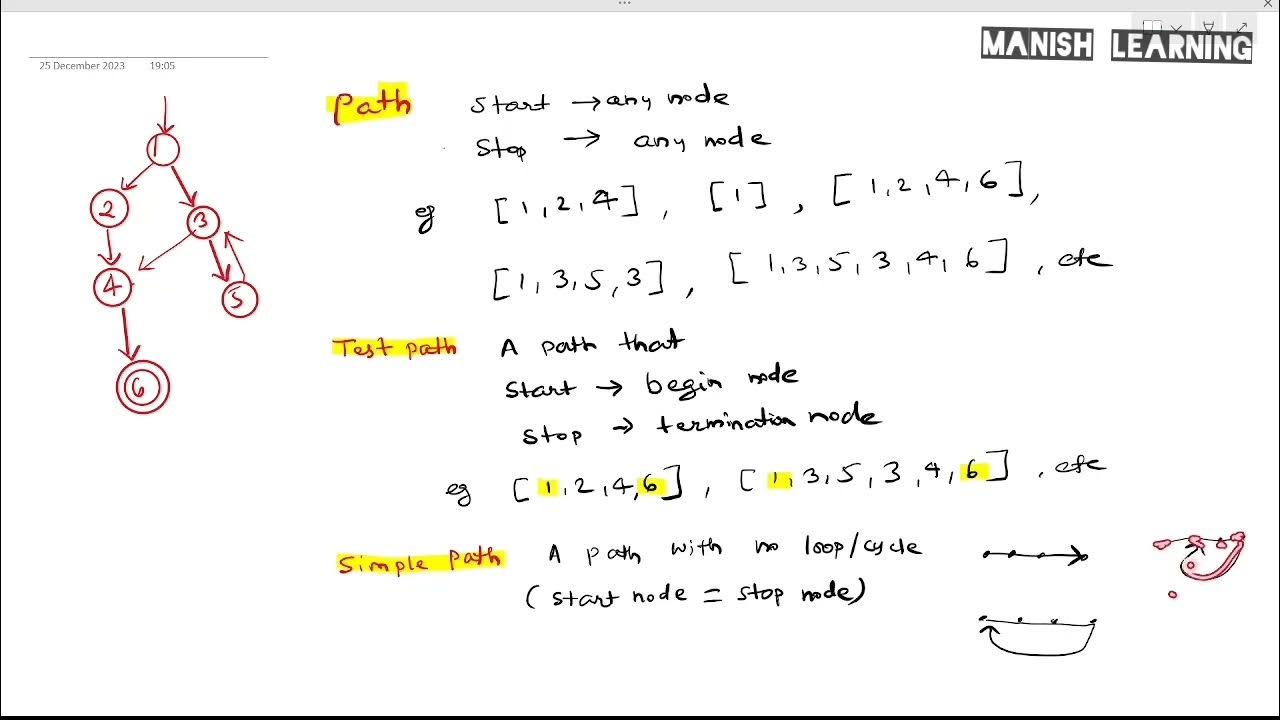 MANISH LEARNING
25 December 2023 19:05
1
2
3
4
5
6
Path Start → any node
Stop → any node
eg [1,2,4], [1], [1,2,4,6],
[1,3,5,3], [1,3,5,3,4,6], etc
Test path A path that
Start → begin node
Stop → termination node
eg [1,2,4,6], [1,3,5,3,4,6], etc
Simple path A path with no loop/cycle
(start node = stop node)